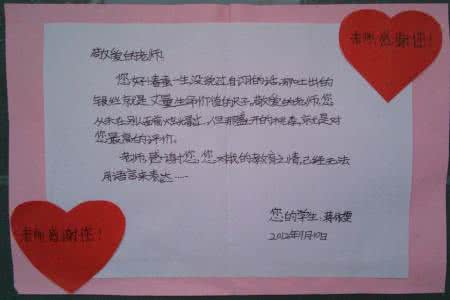 老师感谢您!
敬爱的老师:
您好!春蚕一生没说过自诩的话,那吐出的
银丝就是丈量生命价值的尺子。敬爱的老师,您
从未在别人面前炫耀过,但那盛开的桃李,就是对
您最高的评价。
老师,感谢您,您对我的教育之情,已经无法
用语言来表达……
您的学生:
2012年9月10日
老师感谢您!